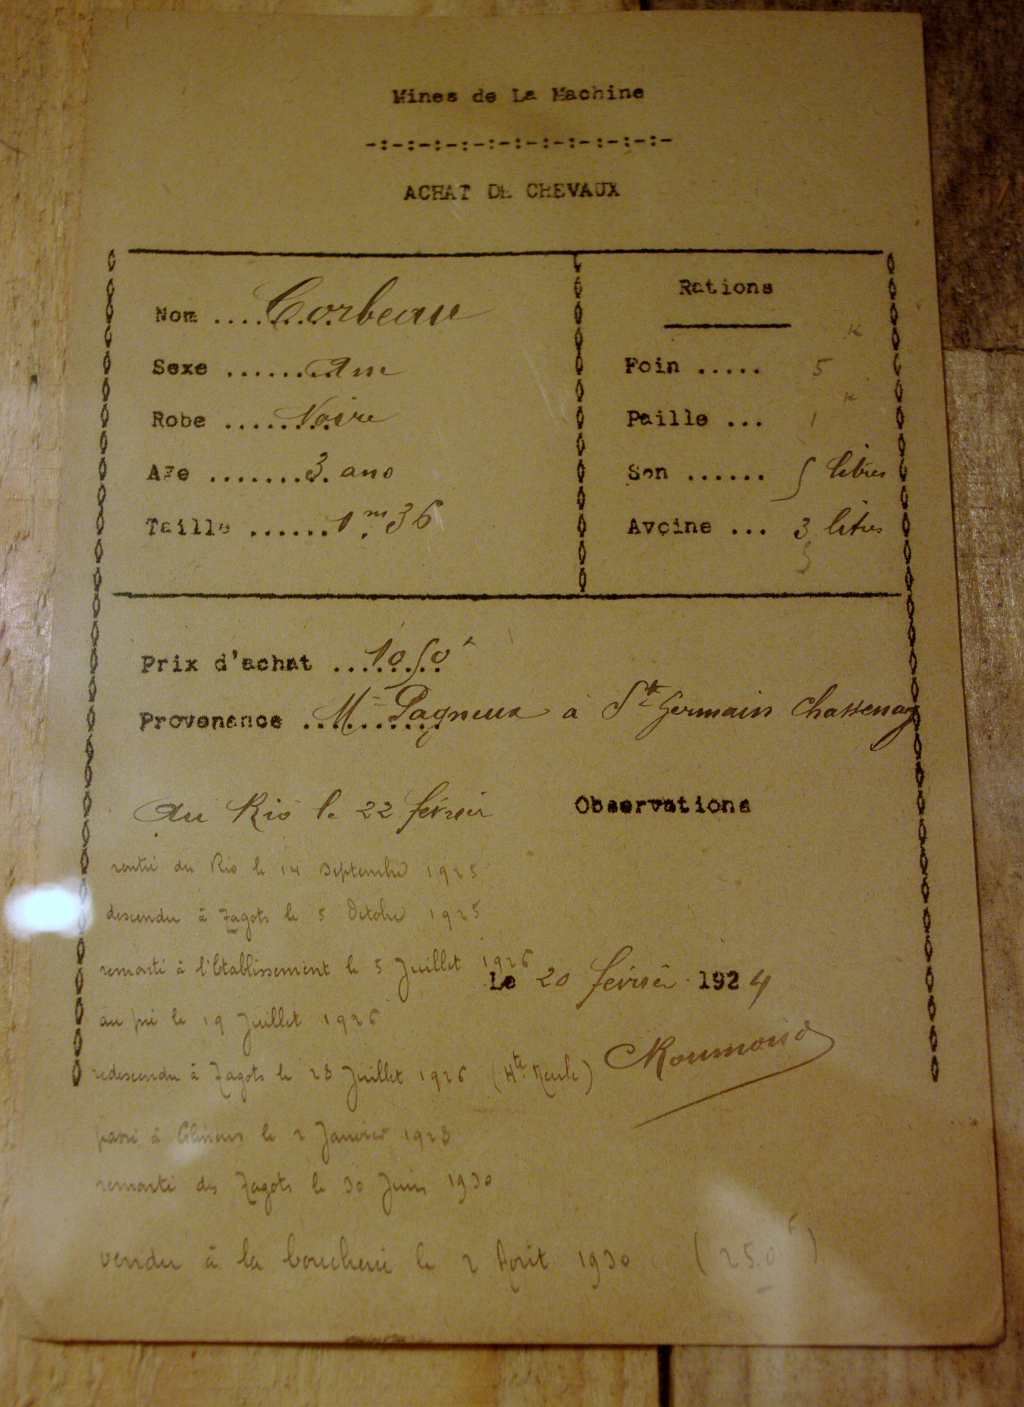 Mines de La Machine
-:-:-:-:-:-:-:-:-:-:-:-
ACHAT DE CHEVAUX
Nom .... Corbeau
Sexe ...... Ane
Robe ...... Noire
Age ....... 3 ans
Taille ...... 1m,36
Rations
Foin ..... 5 K
Paille ... 1 K
Son ...... 5 litres
Avoine ... 3 litres
5
Prix d'achat ... 1050 f
Provenance ... Mr Pagneux à St Germain Chassenay
Observations
Au Rio le 22 février
rentré du Rio le 14 Septembre 1925
descendu à Zagots le 5 Octobre 1925
remonté à l'Etablissement le 5 Juillet 1926
Le 20 février 1924
au pré le 19 Juillet 1926
redescendu à Zagots le 28 Juillet 1926 (Hte Meule)
passé à le 2 Janvier 1928
remonté des Zagots le 30 Juin 1930
vendu à la boucherie le 2 Août 1930 (250 f)